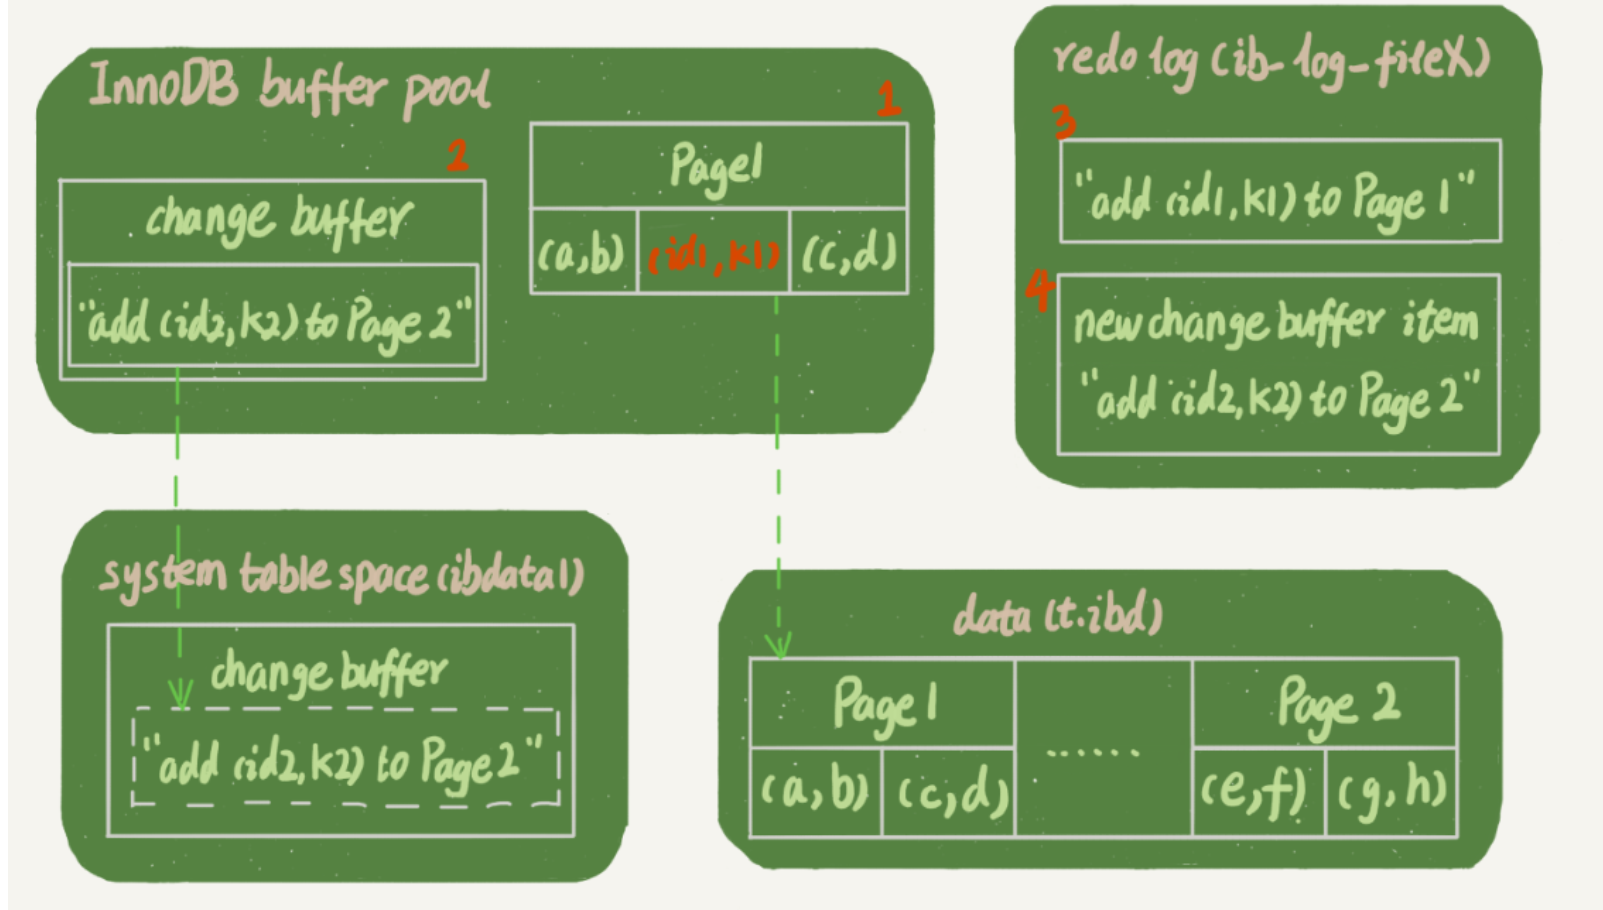 InnoDB buffer pool
1
Page1
(a,b) (id1,k1) (c,d)
2
change buffer
"add (id2,k2) to Page 2"
redo log (ib_log_fileX)
3
"add (id1,k1) to Page 1"
4
new change buffer item
"add (id2,k2) to Page 2"
system table space (ibdata1)
change buffer
"add (id2,k2) to Page2"
data (t.ibd)
Page1 ...... Page 2
(a,b) (c,d) (e,f) (g,h)